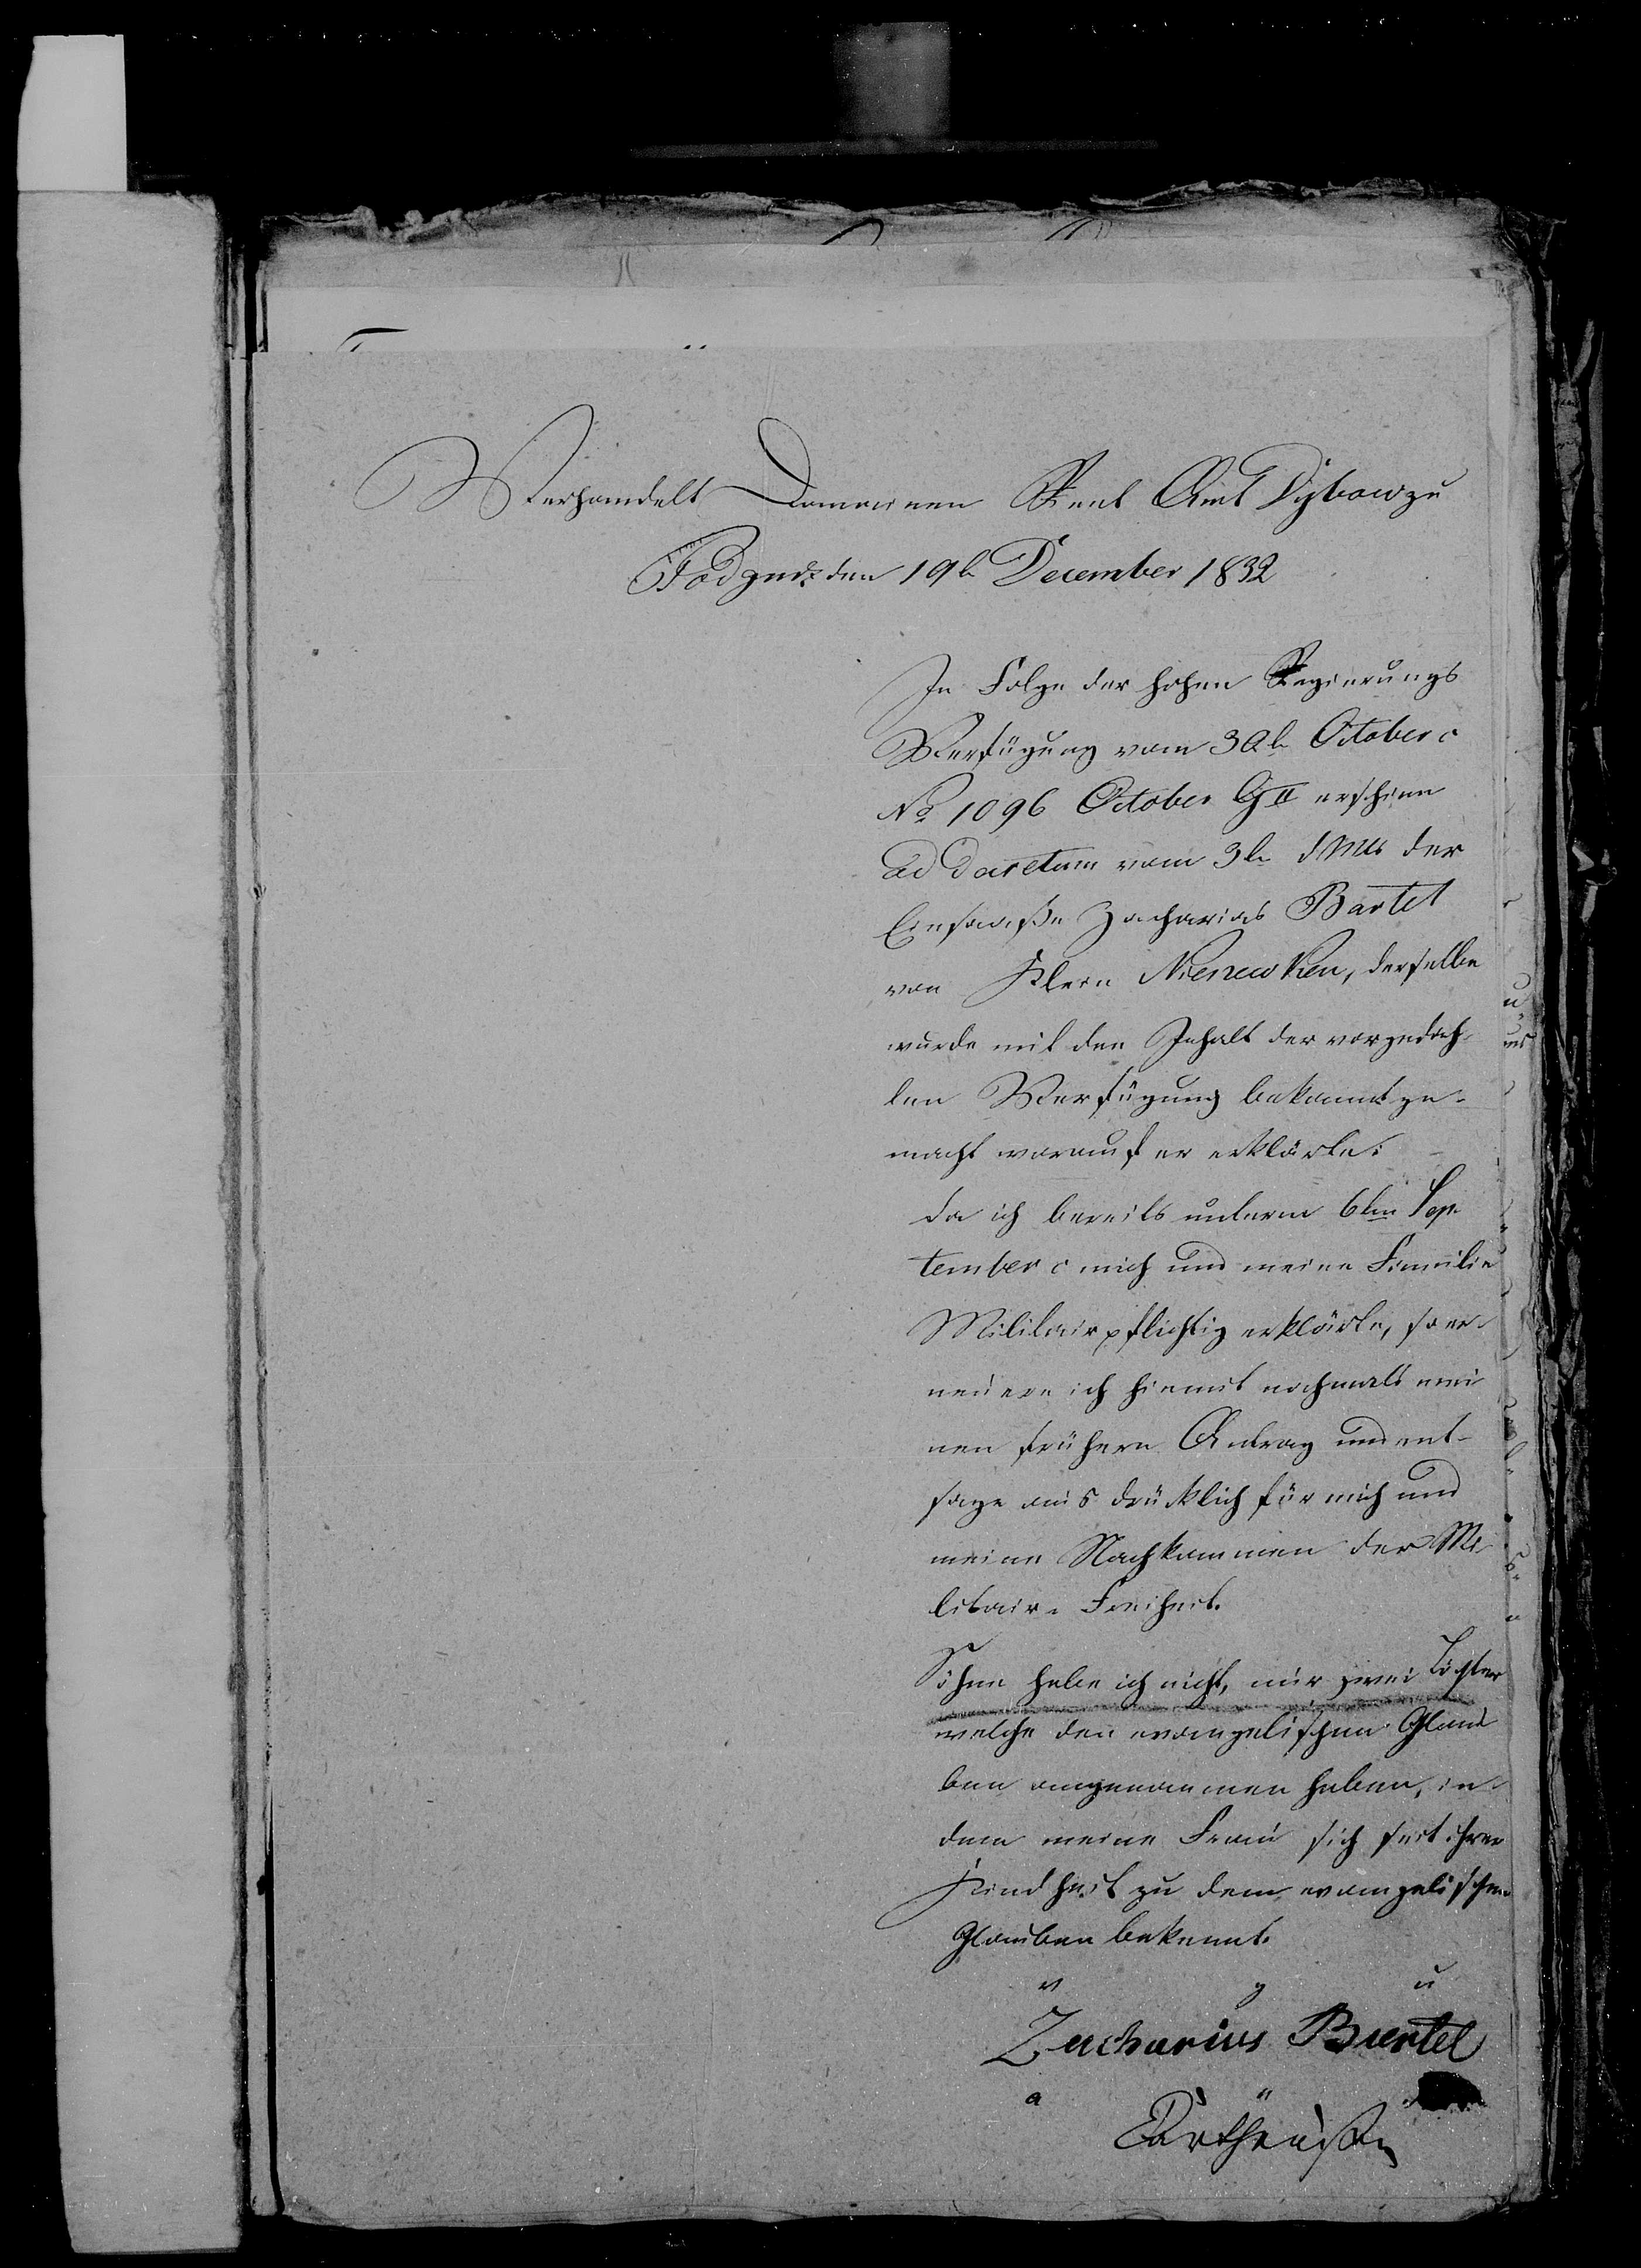 Verhandelt Domainen Rent Amt Dybow zu
Podgurz den 19t December 1832
In Folge der hohen Regierungs
Verfügung vom 30t October c
No 1096 October G II erschien
ad Decretum vom 3t d Mts der
Einsaaße Zacharias Bartel
von Klein Niszewken, derselbe
wurde mit den Inhalt der vorgedach-
ten Verfügung bekannt ge-
macht worauf er erklärte:
da ich bereits unterm 6ten Sep-
tember c mich und meine Familie
Militairpflichtig erklärte, so er-
neuere ich hiemit nochmals mei-
nen frühern Antrag und ent-
sage ausdrüklich für mich und
meine Nachkommen der Mi-
litair-Freiheit.
Söhne habe ich nicht, nur zwei Töchter
welche den evangelischen Glau-
ben angenommen haben, in-
dem meine Frau sich seit ihrer
Kindheit zu dem evangelischen
Glauben bekennt.
v g u
Zacharias Bartel
a u